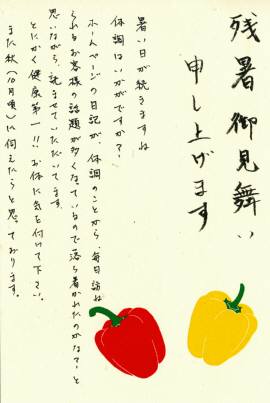 残暑御見舞い
申し上げます
暑い日が続きますね
体調はいかがですか？
ホームページの日記が、体調のことから、毎日訪ね
られるお客様の話題が多くなっているので落ち着かれたのかな？と
思いながら、読ませていただいてます。
とにかく健康第一!!お体に気を付けて下さい。
また秋（10月頃）に伺えたらと思っております。